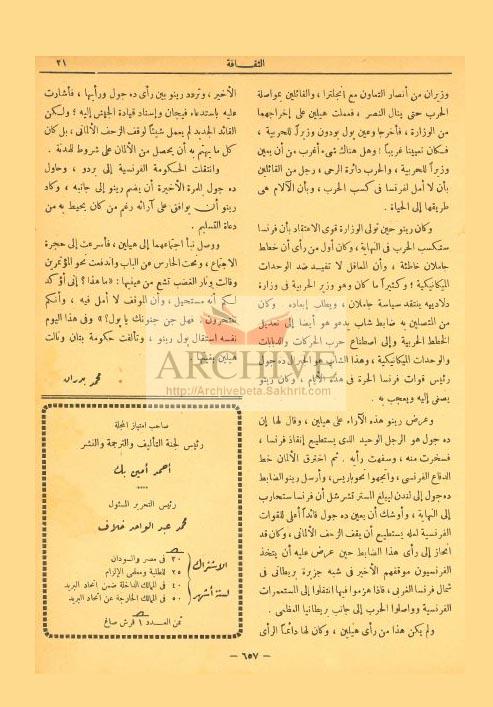 الثقافة
٢١
وزيران من أنصار التعاون مع انجلترا ، والقائلين بمواصلة
الحرب حتى ينال النصر ، فعملت هيلين على إخراجهما
من الوزارة ، فأخرجا وعين بول بودون وزيراً للحربية ،
فكان تعييناً غريباً ! وهل هناك شيء أغرب من أن يعين
وزيراً للحربية ، والحرب دائرة الرحى ، رجل من القائلين
بأن لا أمل لفرنسا في كسب الحرب ، وبأن الآلام هى
طريقها إلى الحياة .
وكان رينو حين تولى الوزارة قوى الاعتقاد بأن فرنسا
ستكسب الحرب فى النهاية ، وكان أول من رأى أن خطط
جاملان خاطئة ، وأن المعاقل لا تفيد ضد الوحدات
الميكانيكية ؛ وكثيراً ما كان وهو وزير الحربية فى وزارة
دلادييه ينتقد سياسة جاملان ، ويطلب إبعاده . وكان
من المتصلين به ضابط شاب يدعو هو أيضا إلى تعديل
الخطط الحربية وإلى اصطناع حرب الحركات والدبابات
والوحدات الميكانيكية ، وهذا الشاب هو الجنرال ده جول
رئيس قوات فرنسا الحرة فى هذه الأيام ، وكان رينو
يصغى إليه ويعجب به .
وعرض رينو هذه الآراء على هيلين ، وقال لها إن
ده جول هو الرجل الوحيد الذى يستطيع إنقاذ فرنسا ،
فسخرت منه ، وسفهت رأيه . ثم اخترق الألمان خط
الدفاع الفرنسى ، واتجهوا نحو باريس ، وأرسل رينو الضابط
ده جول إلى لندن ليبلغ المستر تشرشل أن فرنسا ستحارب
إلى النهاية ، وأوشك أن يعين ده جول قائداً أعلى للقوات
الفرنسية لعله يستطيع أن يقف الزحف الألمانى ، وكان قد
انحاز إلى رأى هذا الضابط حين عرض عليه أن يتخذ
الفرنسيون موقفهم الأخير فى شبه جزيرة بريطانى فى
شمال فرنسا الغربى ، فاذا هزموا فيها انتقلوا إلى المستعمرات
الفرنسية وواصلوا الحرب إلى جانب بريطانيا العظمى .
ولم يكن هذا من رأى هيلين ، وكان لها دائماً الرأى
الأخير ، وتردد رينو بين رأى ده جول ورأيها ، فأشارت
عليه باستدعاء فيجان وإسناد قيادة الجيش إليه ؛ ولكن
القائد الجديد لم يعمل شيئاً لوقف الزحف الألمانى ، بل كان
كل ما يهتم به أن يحصل من الألمان على شروط للهدنة .
وانتقلت الحكومة الفرنسية إلى بردو ، وحاول
ده جول للمرة الأخيرة أن يضم رينو إلى جانبه ، وكاد
رينو أن يوافق على آرائه رغم من كان يحيط به من
دعاة التسليم .
ووصل نبأ اجتماعهما إلى هيلين ، فأسرعت إلى حجرة
الاجتماع ، ونحت الحارس عن الباب واندفعت نحو المؤتمرين
وقالت ونار الغضب تشع من عينيها : « ما هذا ؟ إنى أؤكد
لكم أنه مستحيل ، وأن الموقف لا أمل فيه ، وأنكم
تنتحرون . فهل جن جنونك يا بول ؟ » وفى هذا اليوم
نفسه استقال بول رينو ، وتألفت حكومة بتان ونالت
هيلين بغيتها
محمد بدران
ARCHIVE
http://Archivebeta.Sakhrit.com
صاحب امتياز المجلة
رئيس لجنة التأليف والترجمة والنشر
أحمد أمين بك
رئيس التحرير المسئول
محمد عبد الواحد خلاف
الاشتراك لستة أشهر
٣٠ فى مصر والسودان
٢٥ للطلبة ومعلمى الإلزام
٤٠ فى الممالك الداخلة ضمن اتحاد البريد
٥٠ فى الممالك الخارجة عن اتحاد البريد
ثمن العدد ١ قرش صاغ
— ٦٥٧ —